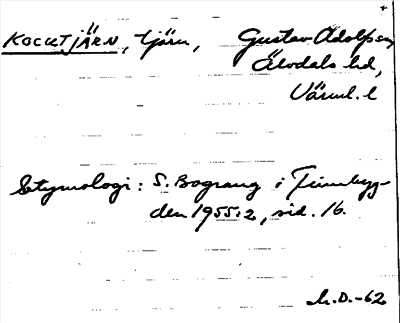 KOCKTJÄRN, tjärn, Gustav Adolfs sn,
Älvdals hd,
Värml. l
Etymologi: S. Bograng i Finnbyg-
den 1955:2, sid. 16.
L.D.-62